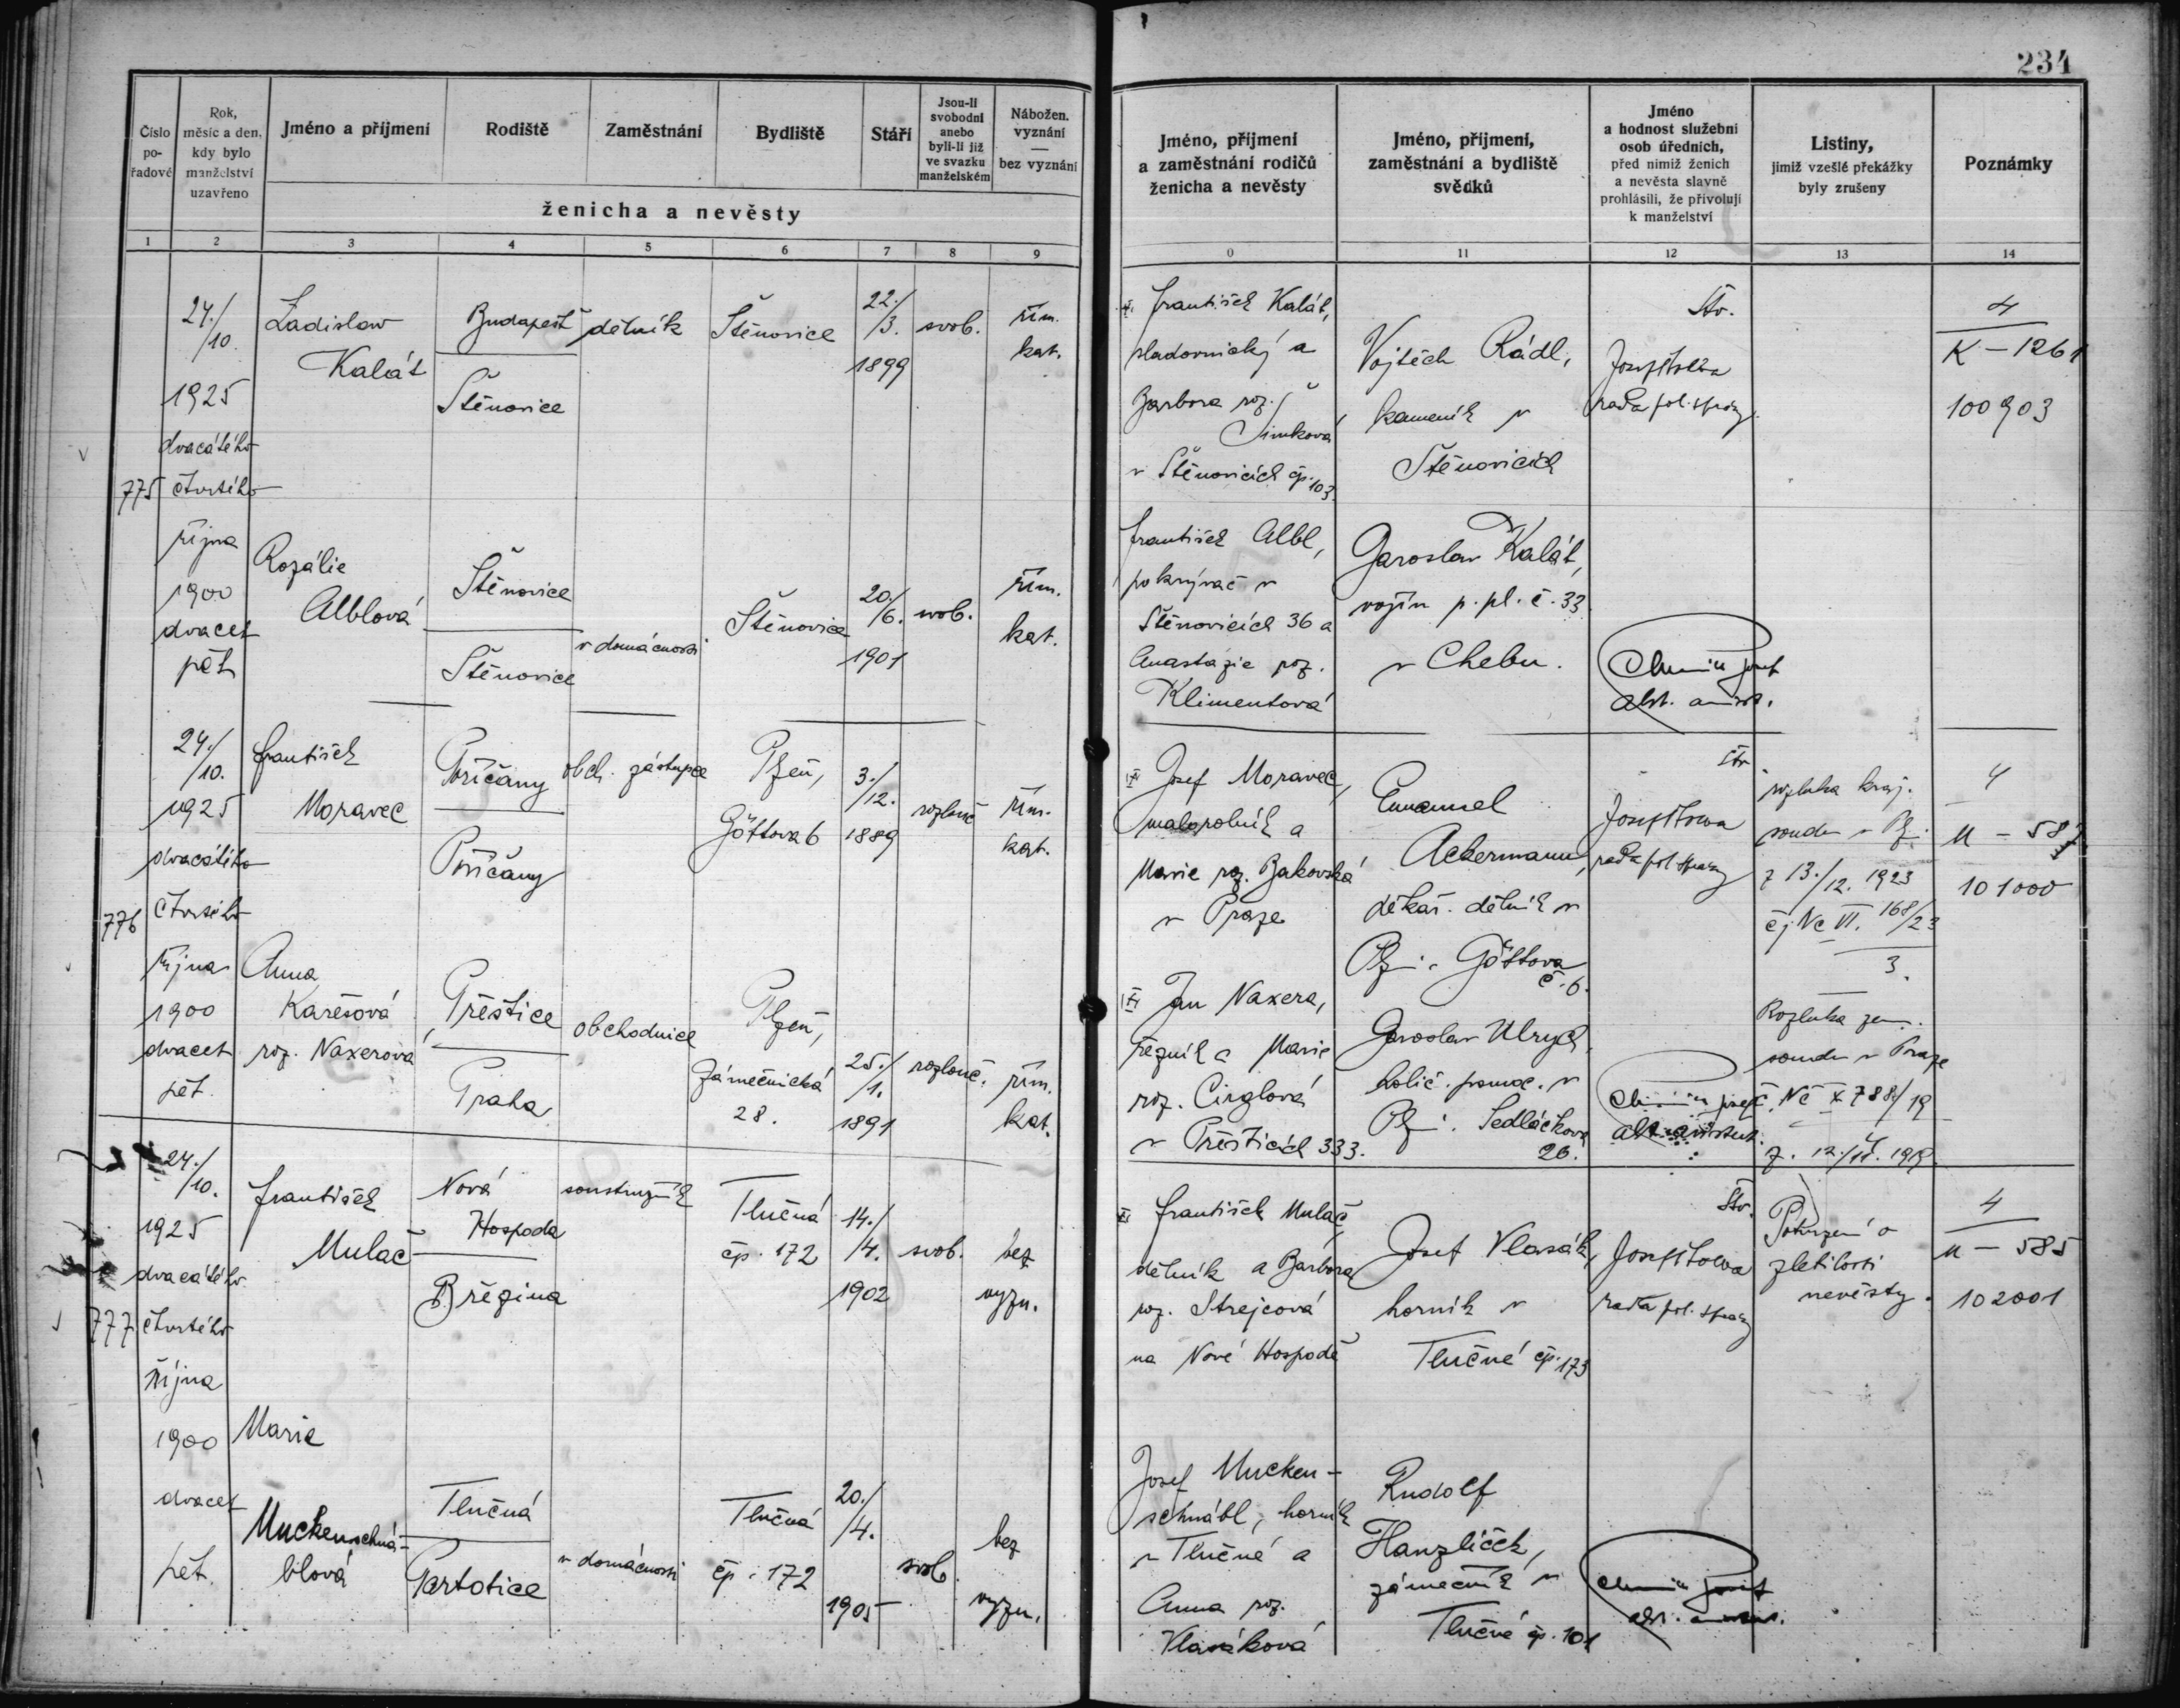 234
Číslo pořadové
Rok, měsíc a den, kdy bylo manželství uzavřeno
Jméno a příjmení
Rodiště
Zaměstnání
Bydliště
Stáří
Jsou-li svobodni anebo byli-li již ve svazku manželském
Nábožen. vyznání — bez vyznání
ženicha a nevěsty
Jméno, příjmení a zaměstnání rodičů ženicha a nevěsty
Jméno, příjmení, zaměstnání a bydliště svědků
Jméno a hodnost služební osob úředních, před nimiž ženich a nevěsta slavně prohlásili, že přivolují k manželství
Listiny, jimiž vzešlé překážky byly zrušeny
Poznámky
1 2 3 4 5 6 7 8 9 0 11 12 13 14
775
24./10.
1925
dvacátého
čtvrtého
října
1900
dvacet
pět
Ladislav
Kalát
Budapešť
Štěnovice
dělník
Štěnovice
22./3.
1899
svob.
řím.
kat.
František Kalát,
sladovnický a
Barbora roz.
Šimková,
v Štěnovicích čp. 103.
Vojtěch Rádl,
kameník v
Štěnovicích
Stv.
rada pol. správy
4
K – 1261
100903
Rozálie
Alblová
Štěnovice
Štěnovice
v domácnosti
Štěnovice
20./6.
1901
svob.
řím.
kat.
František Albl,
pokrývač v
Štěnovicích 36 a
Anastázie roz.
Klimentová
Jaroslav Kalát,
vojín p. pl. č. 33.
v Chebu.
776
24./10.
1925
dvacátého
čtvrtého
října
1900
dvacet
pět.
František
Moravec
Poříčany
Poříčany
obch. zástupce
Plzeň,
Göttova 6
3./12.
1889
rozlouč.
řím.
kat.
Josef Moravec,
malorolník a
Marie roz. Bakovská
v Praze
Emanuel
Ackermann,
dělník v
Plz.: Göttova
č. 6.
rada pol. správy
rozluka kraj.
soudu v Plz.
z 13./12. 1923
čj Nc VI. 168/23
3.
4
M – 587
101000
Anna
Karešová
roz. Naxerová
Přeštice
Praha
obchodnice
Plzeň,
Zámečnická
28.
25./1.
1891
rozlouč.
řím.
kat.
Jan Naxera,
řezník a Marie
roz. Cirglová
v Přešticích 333.
Jaroslav Ulrych,
holič. pomoc. v
Plz.: Sedláčkova
26.
Rozluka zem.
soudu v Praze
č. Nc X 788/19
777
24./10.
1925
dvacátého
čtvrtého
října
1900
dvacet
pět.
František
Mulač
Nová
Hospoda
Březina
soustružník
Tlučná
čp. 172
14./4.
1902
svob.
bez
vyzn.
František Mulač,
dělník a Barbora
roz. Strejcová
na Nové Hospodě
Josef Vlasák,
horník v
Tlučné čp. 173
Stv.
rada pol. správy
Potvrzení o
zletilosti
nevěsty.
4
M – 585
102001
Marie
Muckenschná-
blová
Tlučná
Partotice
v domácnosti
Tlučná
čp. 172
20./4.
1905
svob.
bez
vyzn.
Josef Mucken-
schnábl, horník
v Tlučné a
Anna roz.
Vlasáková
Rudolf
Hanzlíček,
zámečník v
Tlučné čp. 101